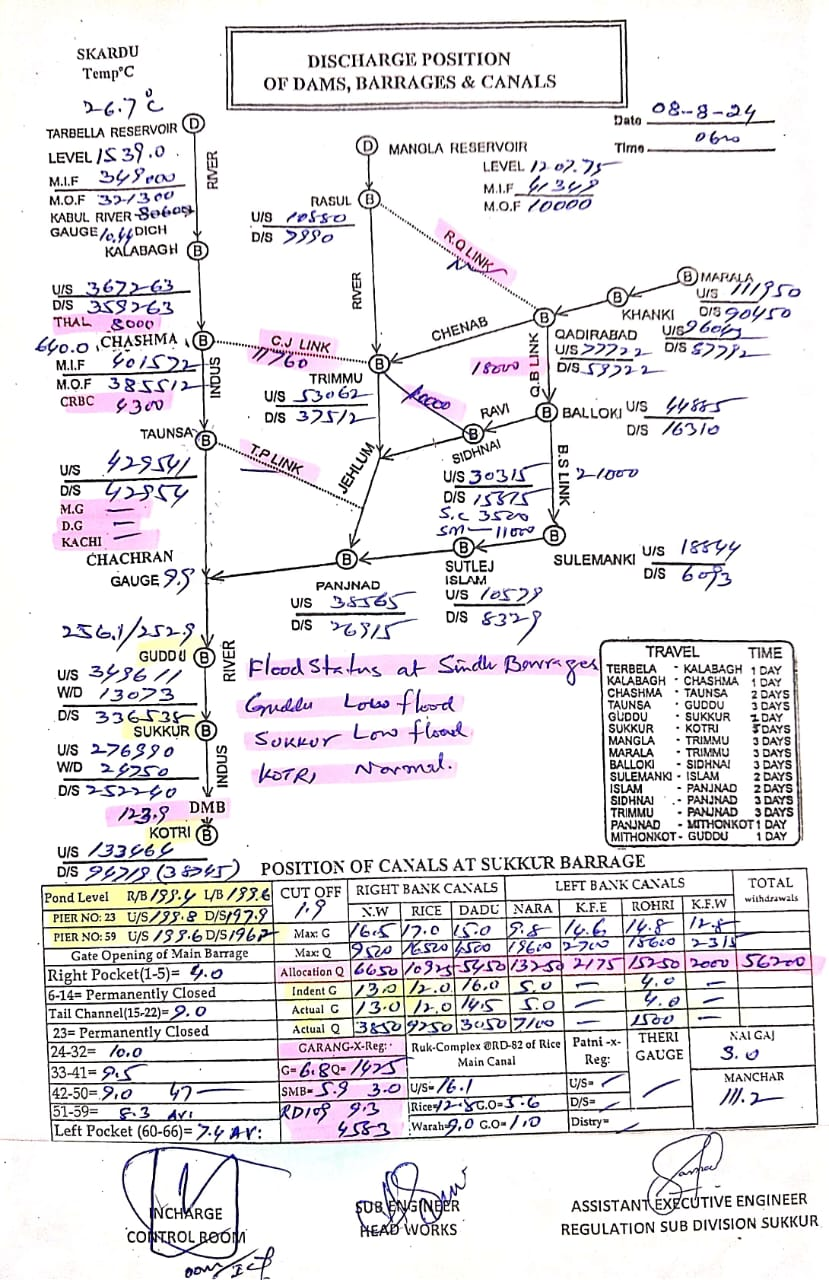 SKARDU
Temp°C
26.7°C
DISCHARGE POSITION
OF DAMS, BARRAGES & CANALS
Date 08-8-24
Time 0600
TARBELLA RESERVOIR D
LEVEL 1539.0
M.I.F 349000
M.O.F 321300
KABUL RIVER
GAUGE DICH
KALABAGH B
RIVER
U/S 367263
D/S 359263
THAL 8000
640.0 CHASHMA B
M.I.F 401572
M.O.F 385512
CRBC 4300
INDUS
TAUNSA B
U/S 429541
D/S 42954
M.G —
D.G —
KACHI —
CHACHRAN
GAUGE 9.9
D MANGLA RESERVOIR
LEVEL 1207.75
M.I.F 41349
M.O.F 10000
RASUL B
U/S 10550
D/S 7990
R.Q LINK
RIVER
C.J LINK
11760
CHENAB
B MARALA
U/S 111950
D/S 90450
B KHANKI
D/S 87792
B QADIRABAD
U/S 77722
D/S 59722
18000
Q.B LINK
TRIMMU B
U/S 53062
D/S 37512
RAVI
B BALLOKI
U/S 44885
D/S 16310
B SIDHNAI
U/S 30315
D/S 15815
S.C 3500
SM — 11000
T.P LINK
JEHLUM
B.S LINK 21000
B SULEMANKI
U/S 18844
D/S 6093
B SUTLEJ
ISLAM
U/S 10579
D/S 8329
B PANJNAD
U/S 38565
D/S 26915
256.1/252.9
GUDDU B
U/S 349611
W/D 13073
D/S 336538
SUKKUR B
U/S 276990
W/D 24750
D/S 252240
RIVER
INDUS
123.9 DMB
KOTRI B
U/S 133464
D/S 94719 (38745)
Flood Status at Sindh Barrages
Guddu Low flood
Sukkur Low flood
KOTRI Normal.
TRAVEL TIME
TERBELA - KALABAGH 1 DAY
KALABAGH - CHASHMA 1 DAY
CHASHMA - TAUNSA 2 DAYS
TAUNSA - GUDDU 3 DAYS
GUDDU - SUKKUR DAY
SUKKUR - KOTRI DAYS
MANGLA - TRIMMU 3 DAYS
MARALA - TRIMMU 3 DAYS
BALLOKI - SIDHNAI 3 DAYS
SULEMANKI - ISLAM 2 DAYS
ISLAM - PANJNAD 2 DAYS
SIDHNAI - PANJNAD 3 DAYS
TRIMMU - PANJNAD 3 DAYS
PANJNAD - MITHONKOT 1 DAY
MITHONKOT - GUDDU 1 DAY
POSITION OF CANALS AT SUKKUR BARRAGE
Pond Level R/B 199.4 L/B 199.6 CUT OFF RIGHT BANK CANALS LEFT BANK CANALS TOTAL
PIER NO: 23 U/S 199.8 D/S 197.9 1.9 N.W RICE DADU NARA K.F.E ROHRI K.F.W withdrawals
PIER NO: 59 U/S 199.6 D/S 196.2 Max: G 16.5 17.0 15.0 9.8 14.6 14.8 12.8
Gate Opening of Main Barrage Max: Q 9520 16520 4500 19600 2700 15600 2315
Right Pocket(1-5)= 4.0 Allocation Q 6650 10925 5450 13250 2175 15250 2000 56200
6-14= Permanently Closed Indent G 13.0 12.0 16.0 5.0 — 4.0 —
Tail Channel(15-22)= 9.0 Actual G 13.0 12.0 14.5 5.0 — 4.0 —
23= Permanently Closed Actual Q 3850 9250 3050 7100 — 1500 —
24-32= 10.0 GARANG-X-Reg: Ruk-Complex @RD-82 of Rice Main Canal Patni -x- Reg: THERI GAUGE NAI GAJ
33-41= 9.5 G= 6.8 Q= 1425 3.0
42-50= 9.0 47 — SMB= 5.9 3.0 U/S= 16.1 U/S= MANCHAR
51-59= 8.3 AV: RD109 9.3 Rice= 12.8 G.O= 3.6 D/S= 111.2
Left Pocket (60-66)= 7.4 AV: 4583 Warah= 9.0 G.O= 1.0 Distry=
INCHARGE
CONTROL ROOM
SUB ENGINEER
HEAD WORKS
ASSISTANT EXECUTIVE ENGINEER
REGULATION SUB DIVISION SUKKUR